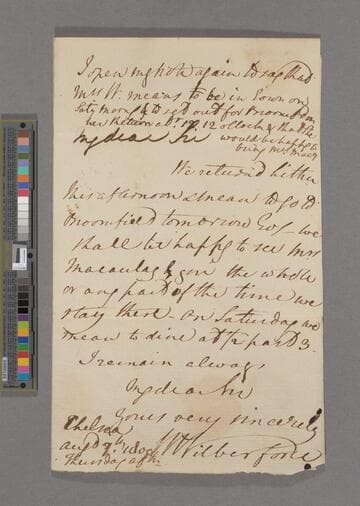 I open my note again to say that
Mrs W. means to be in Town on
Saty Morng & to set out for Broomfd on
her Return abt 12 o'Clock & that She
would be happy to
bring Mrs Macy
My dear Sir
We returned hither
this afternoon & mean to go to
Broomfield tomorrow Eveg we
shall be happy to see Mrs
Macaulay & you the whole
or any part of the time we
stay there. On Saturday we
mean to dine at 1/2 past 3.
I remain always
My dear Sir
Yours very sincerely
W Wilberforce
Chelsea
Augt
Thursday aftn.